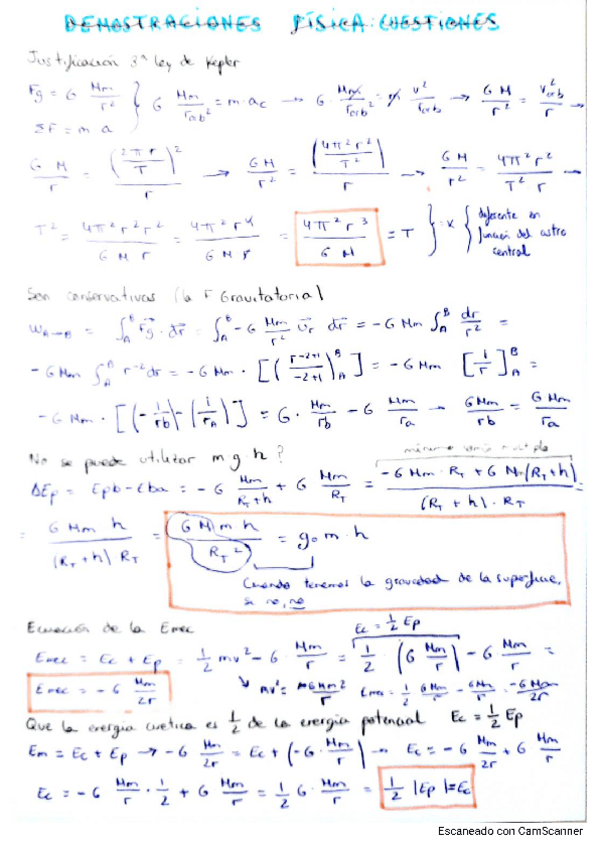 DEMOSTRACIONES FÍSICA: CUESTIONES
Justificación 3ª ley de Kepler
Fg = G Mm/r² } G Mm/rorb² = m·ac → G·Mm/rorb² = m v²/rorb → G M/r² = v²orb/r →
ΣF = m a
G M/r² = (2πr/T)²/r → G M/r² = (4π²r²/T²)/r → G M/r² = 4π²r²/T² r →
T² = 4π²r²r²/G M r = 4π²r⁴/G M r = 4π²r³/G M = T } = K { diferente en función del astro central
Son conservativas (la F Gravitatoria)
WA→B = ∫AB Fg · dr = ∫AB -G Mm/r² Ur dr = -G Mm ∫AB dr/r² =
-G Mm ∫AB r⁻² dr = -G Mm · [(r⁻²⁺¹/-2+1)AB] = -G Mm [1/r]AB =
-G Mm · [(-1/rb) - (1/rA)] = G · Mm/rb - G Mm/ra → GMm/rb = GMm/ra
No se puede utilizar m g h?
ΔEp = Epb - Eba = -G Mm/RT+h + G Mm/RT = -G Mm·RT + G M·(RT+h)/(RT+h)·RT =
= G Mm h/(RT+h) RT = G M m h/RT² = g₀ m·h
Cuando tenemos la gravedad de la superficie,
si no, no
Ecuación de la Emec
Ec = 1/2 Ep
Emec = Ec + Ep = 1/2 mv² - G · Mm/r = 1/2 · (G Mm/r) - G Mm/r =
Emec = -G Mm/2r
Emec = 1/2 GMm/r - GMm/r = -GMm/2r
Que la energía cinética es 1/2 de la energía potencial Ec = 1/2 Ep
Em = Ec + Ep → -G Mm/2r = Ec + (-G·Mm/r) → Ec = -G Mm/2r + G Mm/r
Ec = -G Mm/r · 1/2 + G Mm/r = 1/2 G · Mm/r = 1/2 |Ep| = Ec
Escaneado con CamScanner